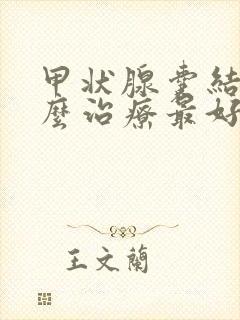 甲状腺囊结
麼治療最好
王文蘭